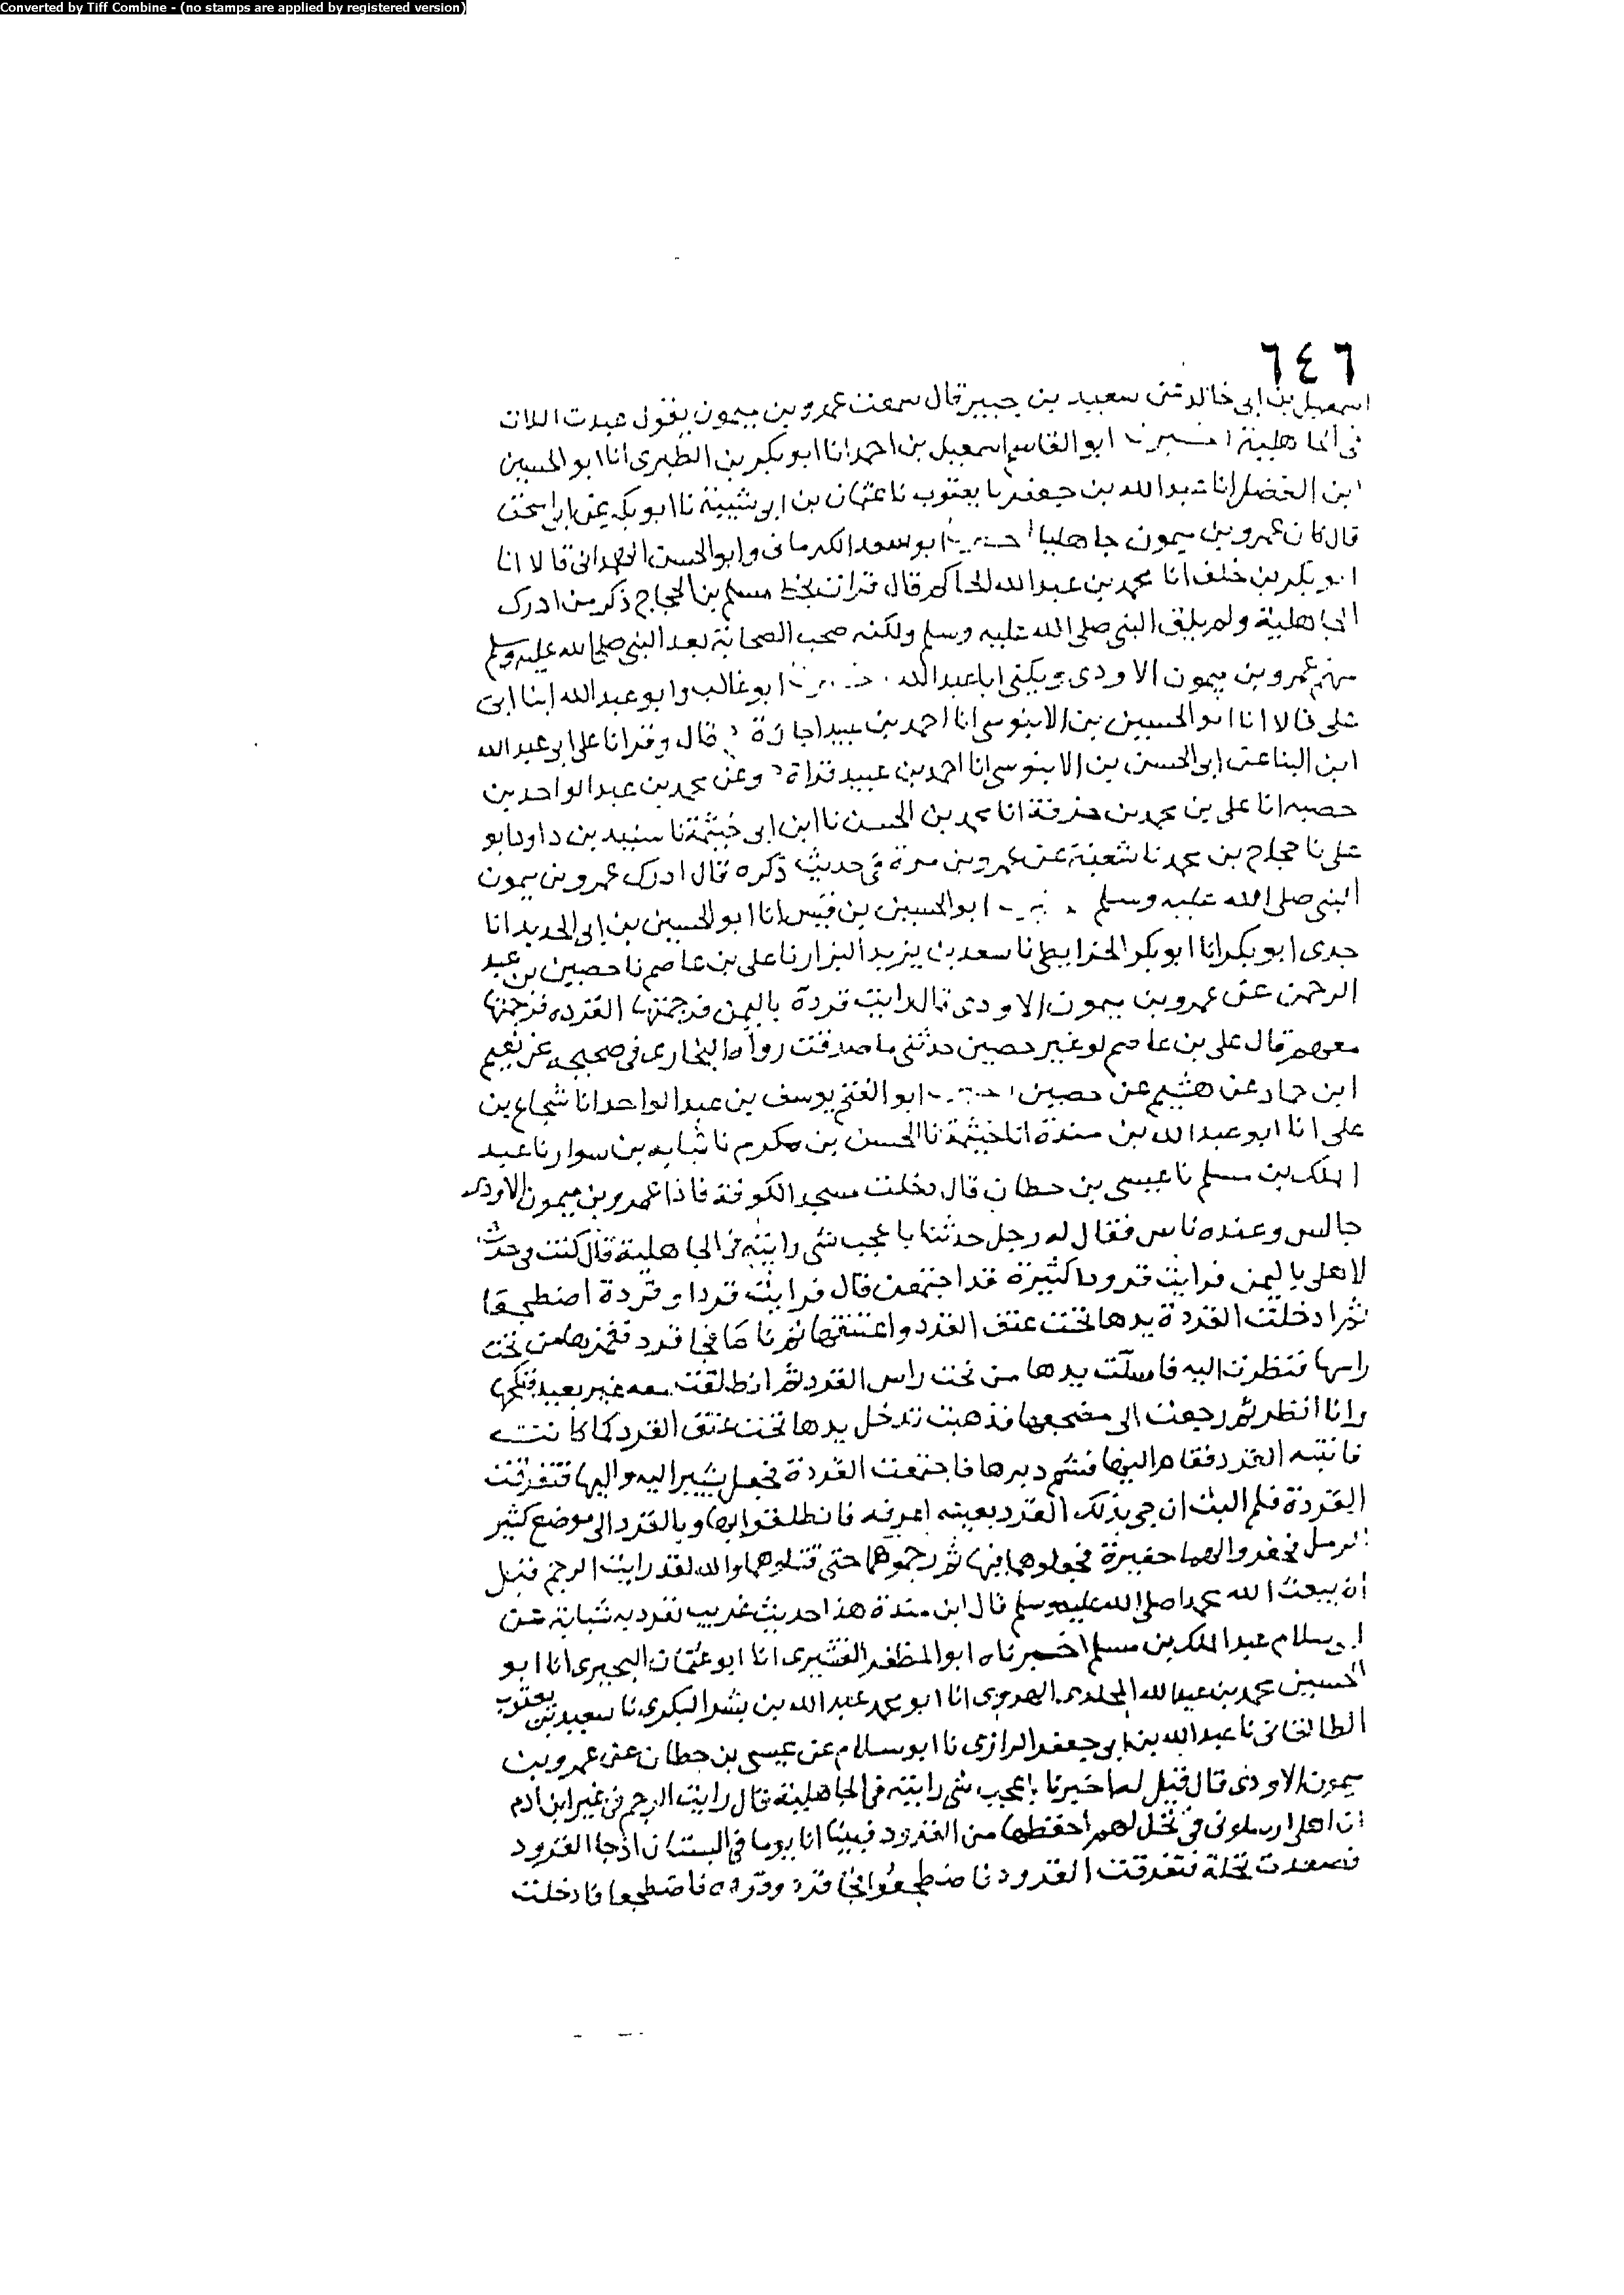 Converted by Tiff Combine - (no stamps are applied by registered version)
٦٤٦
اسمعيل بن ابى خالد عن سعيد بن جبير قال سمعت عمرو بن ميمون يقول عبدت اللات
فى الجاهلية اخبرنا ابو القاسم اسمعيل بن احمد انا ابو بكر بن الطبرى انا ابو الحسين
ابن الفضل انا عبد الله بن جعفر نا يعقوب نا عثمان بن ابى شيبة نا ابو بكر عن ابى اسحق
قال كان عمرو بن ميمون جاهليا اخبرنا ابو سعد الكرمانى وابو الحسن الهمدانى قالا انا
ابو بكر بن خلف انا محمد بن عبد الله الحاكم قال قرات بخط مسلم بن الحجاج ذكر من ادرك
الجاهلية ولم يلق النبى صلى الله عليه وسلم ولكنه صحب الصحابة بعد النبى صلى الله عليه وسلم
منهم عمرو بن ميمون الاودى ويكنى ابا عبد الله اخبرنا ابو غالب وابو عبد الله ابنا ابى
على قالا انا ابو الحسين بن الابنوسى انا احمد بن عبيد اجازة قال وقرانا على ابى عبد الله
ابن البنا عن ابى الحسن بن الابنوسى انا احمد بن عبيد قراة وعن محمد بن عبد الواحد بن
انا على بن محمد بن خزفة انا محمد بن الحسن نا ابن ابى خيثمة نا سنيد بن داود ابو
على نا حجاج بن محمد نا شعبة عن عمرو بن مرة فى حديث ذكره قال ادرك عمرو بن ميمون
النبى صلى الله عليه وسلم اخبرنا ابو الحسين بن قبيس انا ابو الحسين بن ابى الحديد انا
جدى ابو بكر انا ابو بكر الخرايطى نا سعد بن يزيد البزار نا على بن عاصم نا حصين بن عبد
الرحمن عن عمرو بن ميمون الاودى قال رايت قردة باليمن فرجمتها القرده فرجمتها
معهم قال على بن عاصم لو غير حصين حدثنى ما صدقت رواه البخارى فى صحيحه عن نعيم
ابن حماد عن هشيم عن حصين اخبرنا ابو الفتح يوسف بن عبد الواحد انا شجاع بن
على انا ابو عبد الله بن مندة انا خيثمة نا الحسن بن مكرم نا شبابه بن سوار نا عبد
الملك بن مسلم نا عيسى بن حطان قال دخلت مسجد الكوفة فاذا عمرو بن ميمون الاودى
جالس وعنده ناس فقال له رجل حدثنا باعجب شى رايته فى الجاهلية قال كنت فى حرث
لاهلى باليمن فرايت قرودا كثيرة قد اجتمعن قال فرايت قردا وقردة اضطجعا
ثم ادخلت القردة يدها تحت عنق القرد واعتنقتها ثم ناما فجا قرد فغمزها من تحت
راسها فنظرت اليه فاستلت يدها من تحت راس القرد ثم انطلقت معه غير بعيد فنكحها
وانا انظر ثم رجعت الى مضجعها فذهبت تدخل يدها تحت عنق القرد كما كانت
فانتبه القرد فقام اليها فشم دبرها فاجتمعت القردة فجعل يشير اليه واليها فتفرقت
القردة فلم البث ان جى بذلك القرد بعينه اعرفه فانطلقوا بها وبالقرد الى موضع كثير
الرمل فحفروا لهما حفيرة فجعلوهما فيها ثم رجموهما حتى قتلوهما والله لقد رايت الرجم قبل
ان يبعث الله محمدا صلى الله عليه وسلم قال ابن مندة هذا حديث غريب تفرد به شبابة عن
ابى سلام عبد الملك بن مسلم اخبرناه ابو المظفر القشيرى انا ابو عثمان البحيرى انا ابو
الحسين محمد بن عبد الله المخلدى الهروى انا ابو محمد عبد الله بن بشر البكرى نا سعيد بن يعقوب
الطالقانى نا عبد الله بن ابى جعفر الرازى نا ابو سلام عن عيسى بن حطان عن عمرو بن
ميمون الاودى قال قيل له اخبرنا باعجب شى رايته فى الجاهلية قال رايت الرجم فى غير ابن ادم
ان اهلى ارسلونى فى نخل لهم احفظها من القرود فبينا انا يوما فى البستان اذ جا القرود
فصعدت نخلة فتفرقت القرود فاضطجعوا فجا قرد وقرده فاضطجعا فادخلت